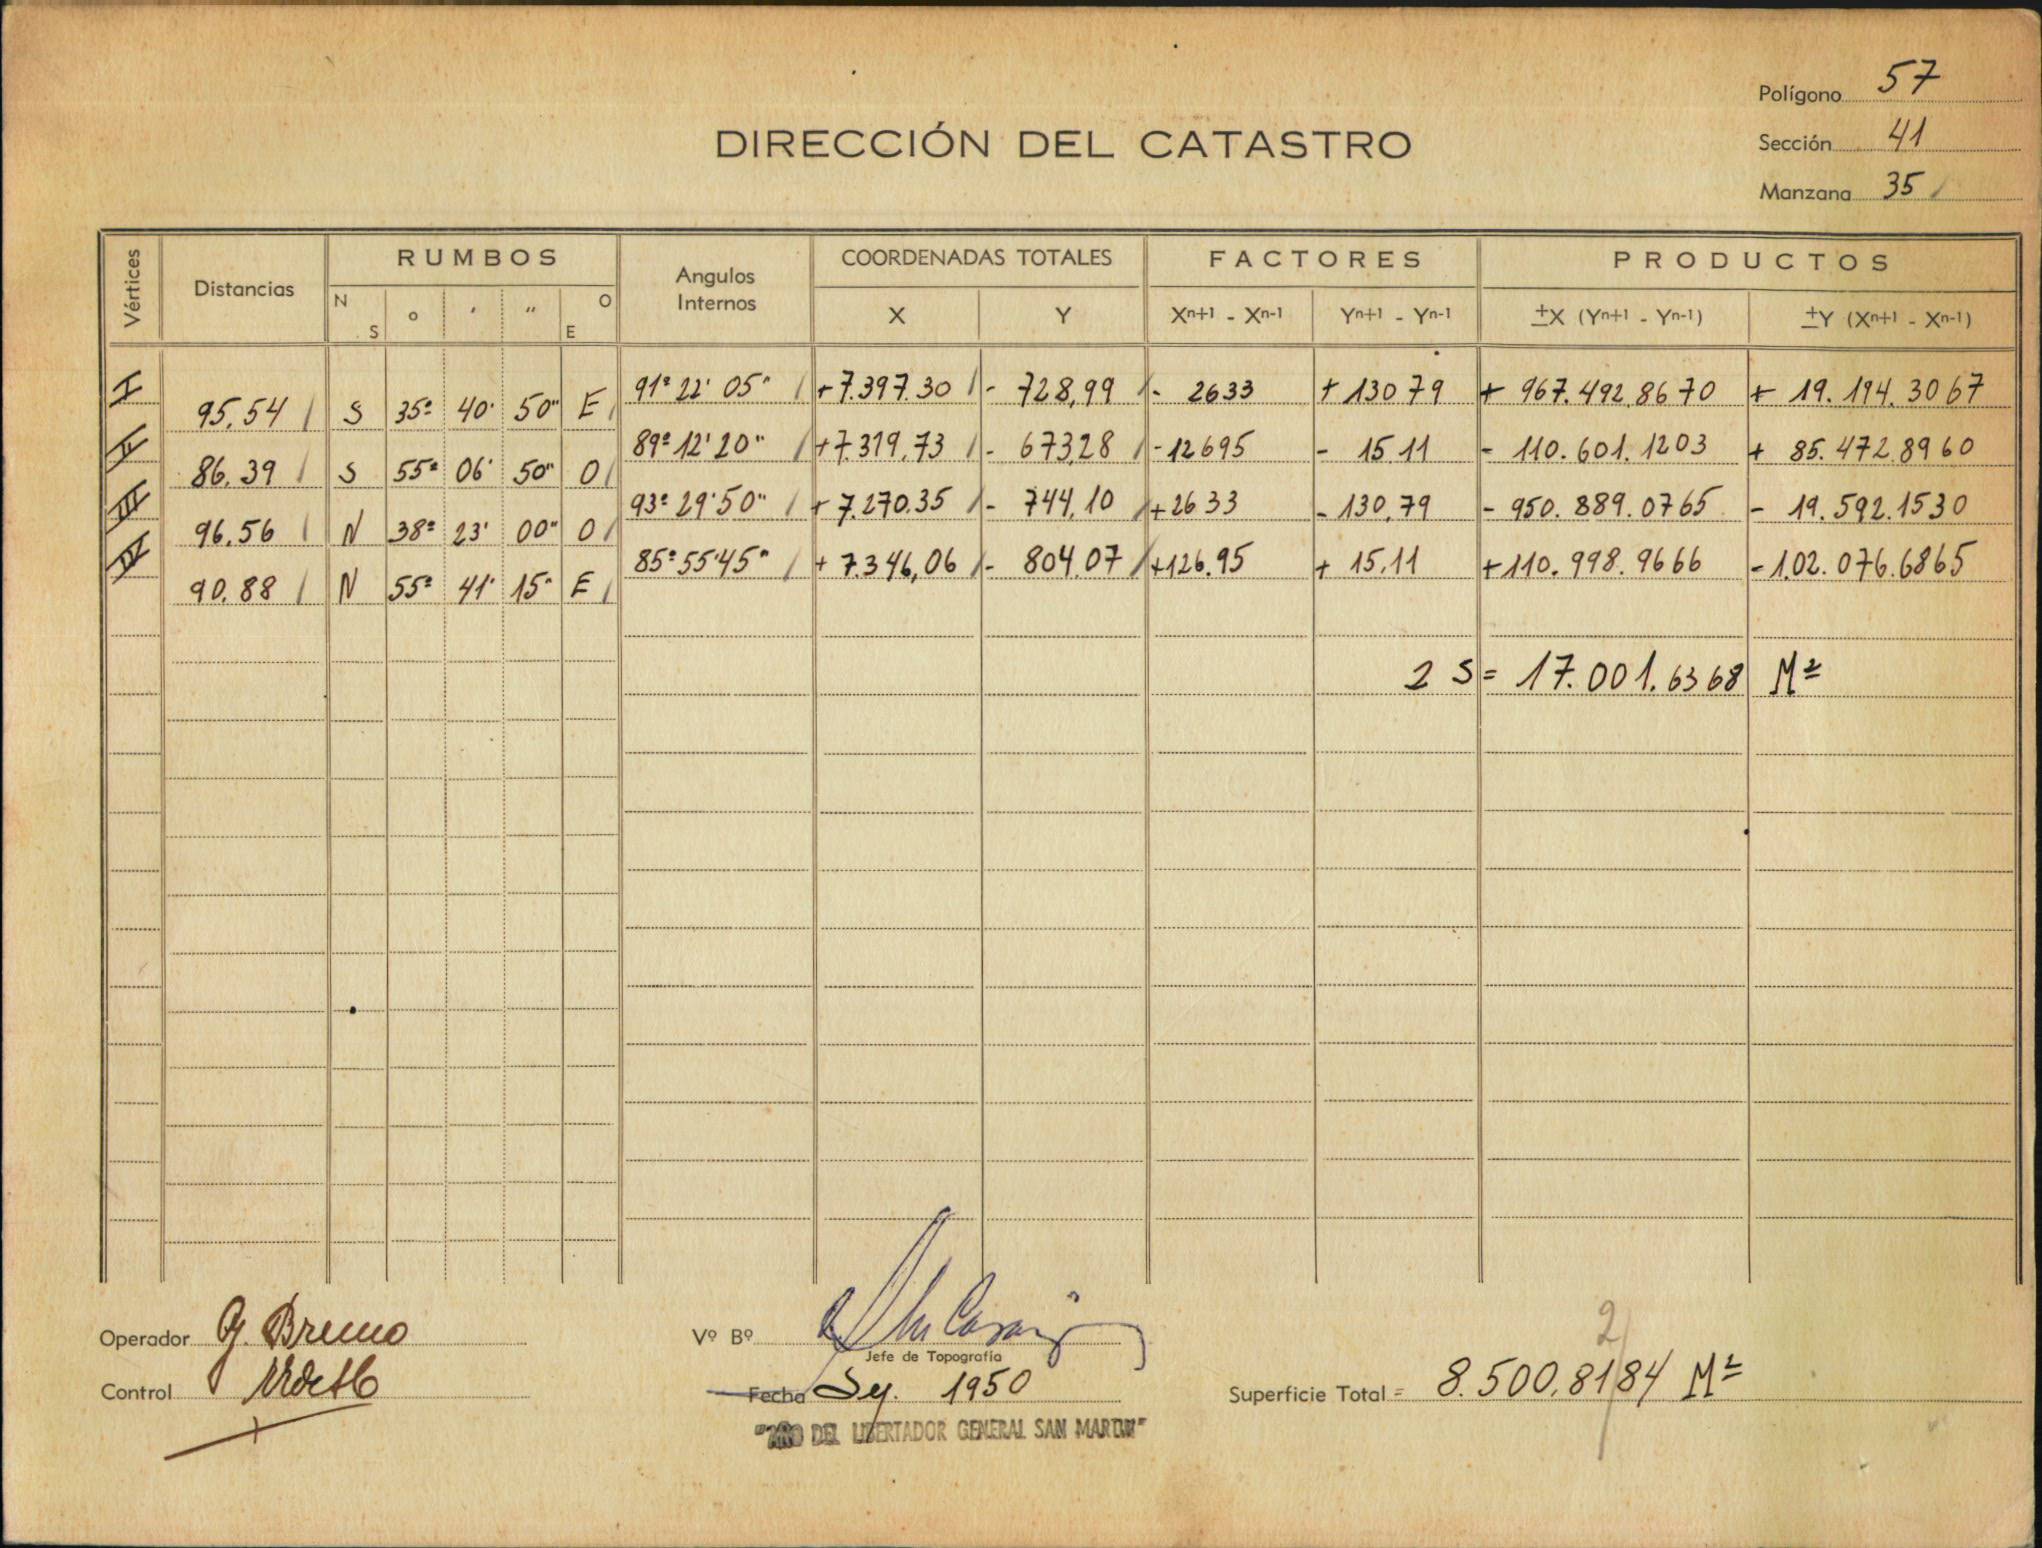 Polígono 57
DIRECCIÓN DEL CATASTRO
Sección 41
Manzana 35
Vértices Distancias RUMBOS Angulos Internos COORDENADAS TOTALES FACTORES PRODUCTOS
N S º ' " O E X Y Xn+1 - Xn-1 Yn+1 - Yn-1 ±X (Yn+1 - Yn-1) ±Y (Xn+1 - Xn-1)
I 91º 22' 05" +7.397.30 - 728,99 - 2633 + 13079 + 967.492.8670 + 19.194.3067
95.54 S 35º 40' 50" E
II 89º 12' 20" +7.319,73 - 673,28 -12695 - 15.11 - 110.601.1203 + 85.472.8960
86.39 S 55º 06' 50" O
III 93º 29' 50" + 7.270.35 - 744,10 +2633 - 130,79 - 950.889.0765 - 19.592.1530
96.56 N 38º 23' 00" O
IV 85º 55' 45" + 7.346,06 - 804.07 +126.95 + 15,11 +110.998.9666 - 102.076.6865
90.88 N 55º 41' 15" E
2 S = 17.001.6368 M²
Operador G. Bruno
Vº Bº
Jefe de Topografía
Control
Fecha 1950
Superficie Total = 8.500,8184 M²
2
"AÑO DEL LIBERTADOR GENERAL SAN MARTIN"